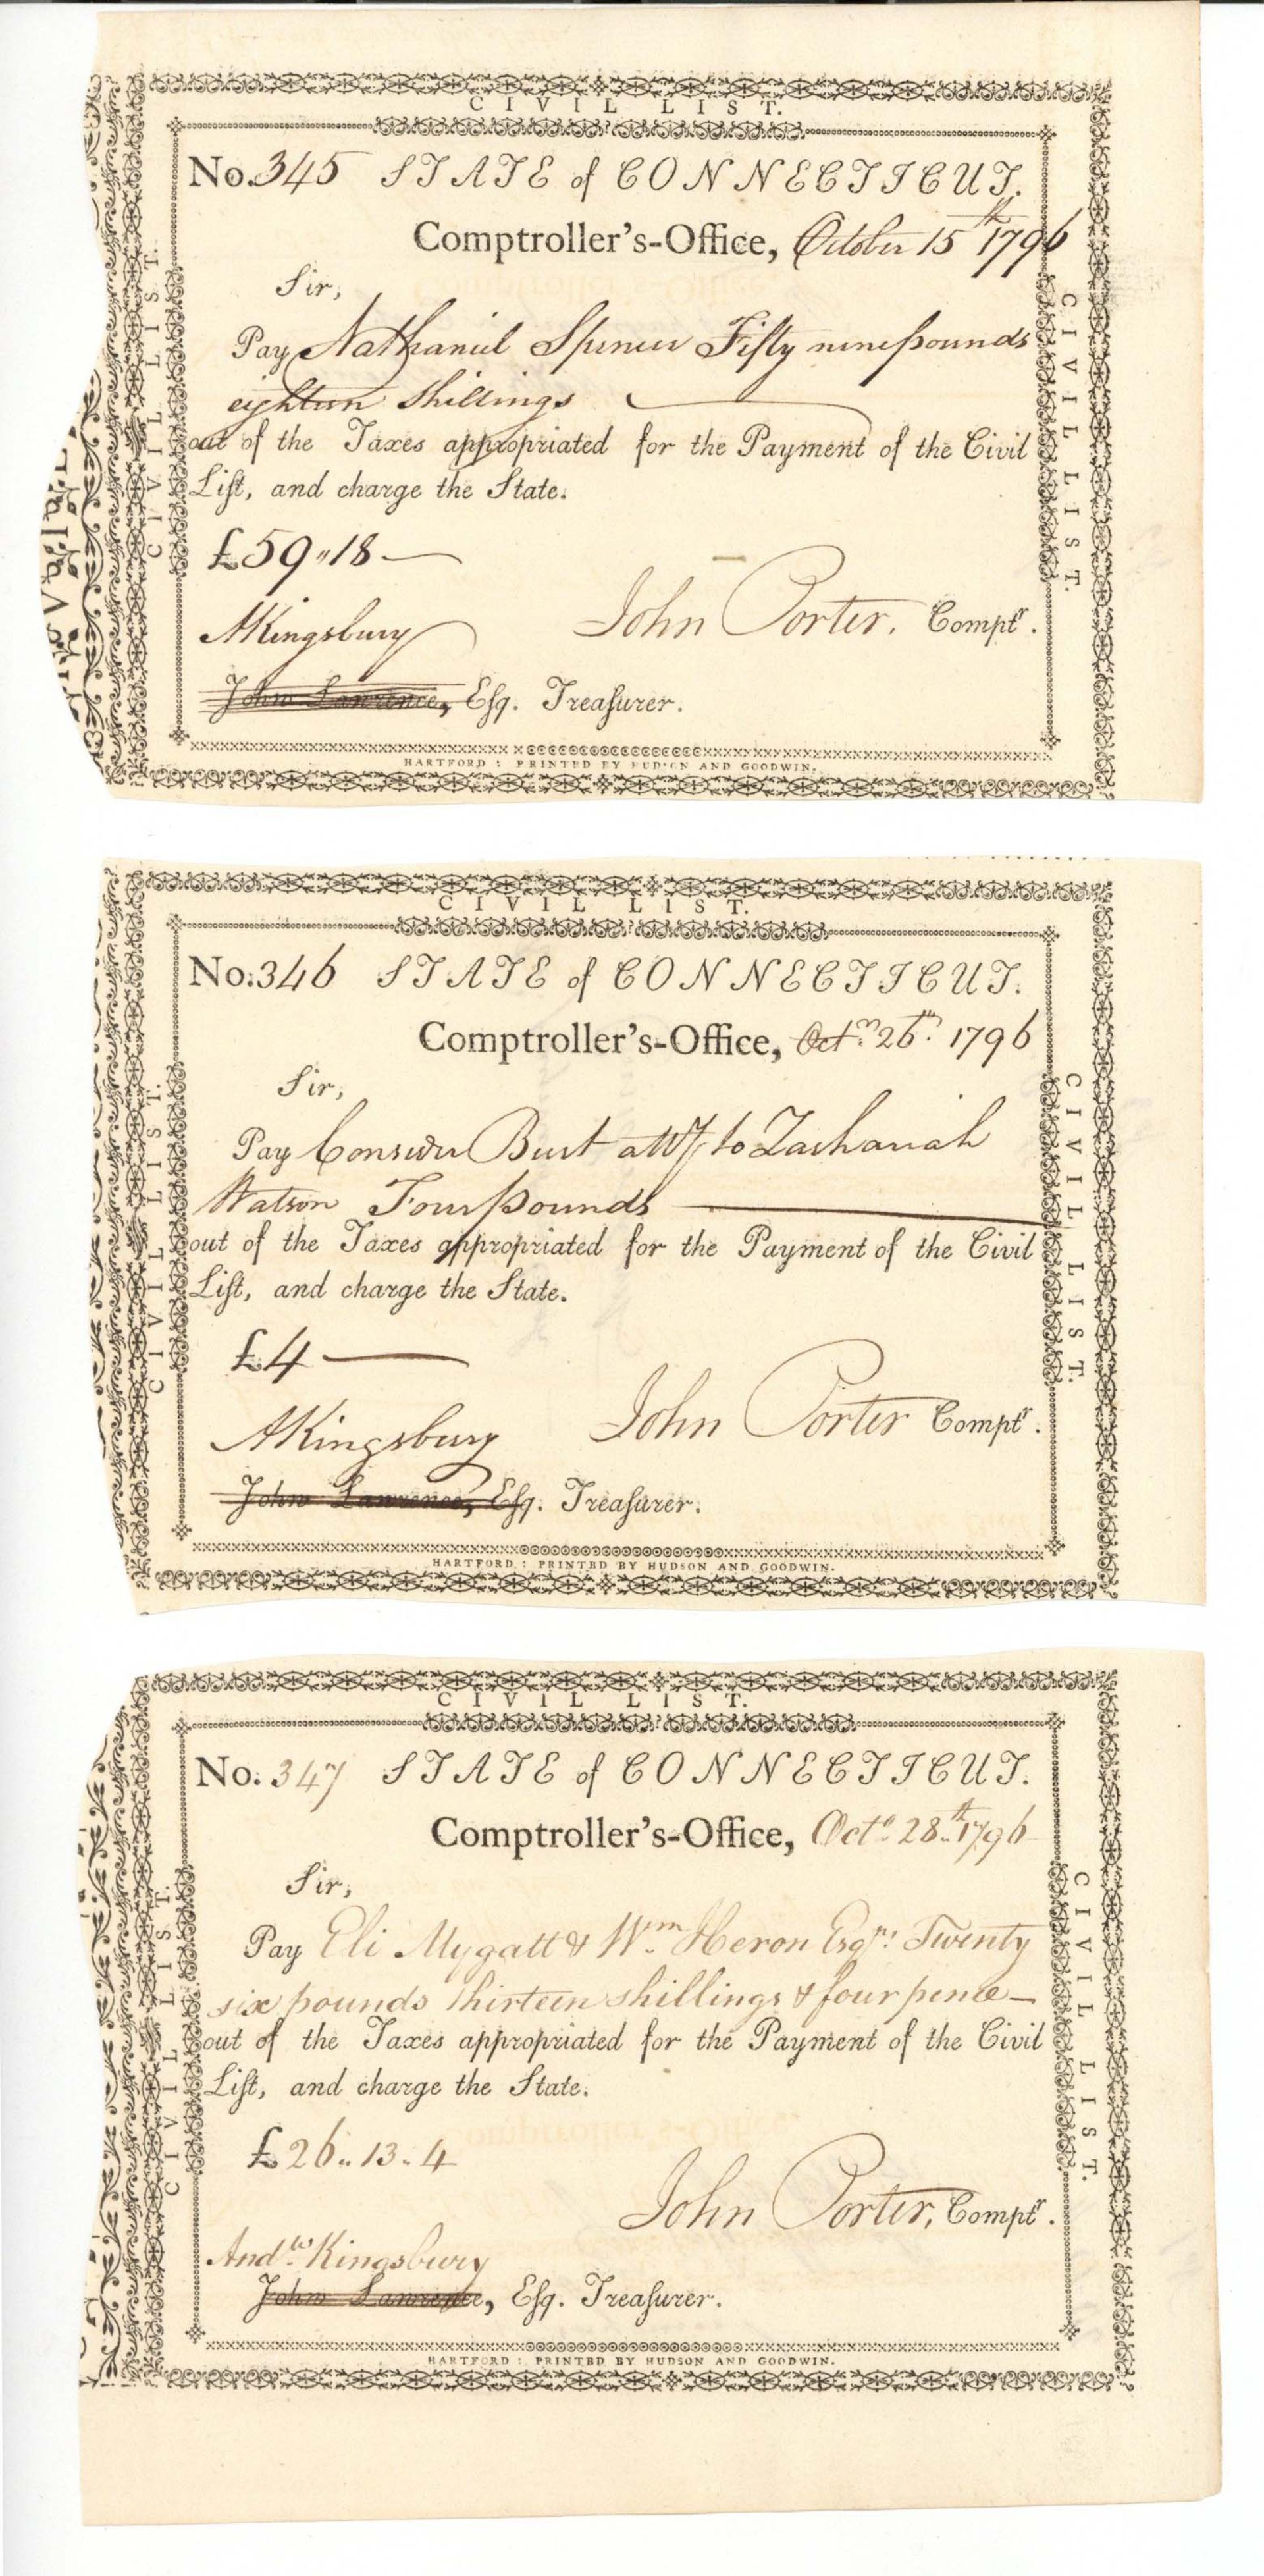 CIVIL LIST.
No. 345 STATE of CONNECTICUT.
Comptroller's-Office, October 15th 1796
Sir,
Pay Nathaniel Spencer Fifty nine pounds
eighteen shillings
out of the Taxes appropriated for the Payment of the Civil
List, and charge the State.
£59,,18
AKingsbury
John Porter, Comptr.
John Lawrence, Esq. Treasurer.
HARTFORD: PRINTED BY HUDSON AND GOODWIN.
CIVIL LIST.
CIVIL LIST.
CIVIL LIST.
No: 346 STATE of CONNECTICUT.
Comptroller's-Office, Octr. 26th. 1796
Sir,
Pay Consider Burt atty to Zachariah
Watson Four pounds
out of the Taxes appropriated for the Payment of the Civil
List, and charge the State.
£4
AKingsbury
John Porter Comptr.
John Lawrence, Esq. Treasurer.
HARTFORD: PRINTED BY HUDSON AND GOODWIN.
CIVIL LIST.
CIVIL LIST.
CIVIL LIST.
No. 347 STATE of CONNECTICUT.
Comptroller's-Office, Octr. 28th 1796
Sir,
Pay Eli Mygatt & Wm Heron Esqrs. Twenty
six pounds thirteen shillings & four pence
out of the Taxes appropriated for the Payment of the Civil
List, and charge the State.
£26..13..4
John Porter, Comptr.
Andw. Kingsbury
John Lawrence, Esq. Treasurer.
HARTFORD: PRINTED BY HUDSON AND GOODWIN.
CIVIL LIST.
CIVIL LIST.